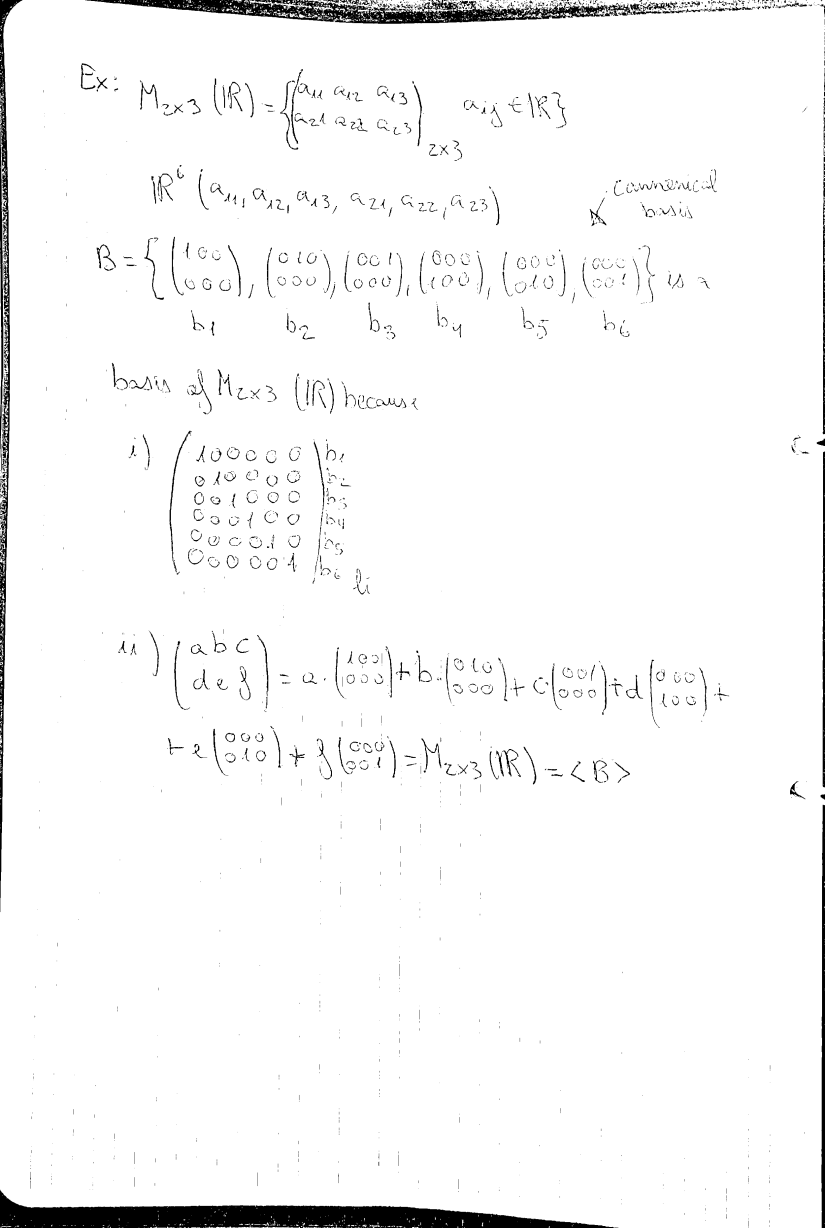 Ex: M₂ₓ₃ (ℝ) = {(a₁₁ a₁₂ a₁₃
a₂₁ a₂₂ a₂₃)₂ₓ₃ aᵢⱼ ∈ ℝ}
ℝ⁶ (a₁₁, a₁₂, a₁₃, a₂₁, a₂₂, a₂₃)
cannonical
basis
B = {(1 0 0 / 0 0 0), (0 1 0 / 0 0 0), (0 0 1 / 0 0 0), (0 0 0 / 1 0 0), (0 0 0 / 0 1 0), (0 0 0 / 0 0 1)} is a
b₁ b₂ b₃ b₄ b₅ b₆
basis of M₂ₓ₃ (ℝ) because
i) (1 0 0 0 0 0 | b₁
0 1 0 0 0 0 | b₂
0 0 1 0 0 0 | b₃
0 0 0 1 0 0 | b₄
0 0 0 0 1 0 | b₅
0 0 0 0 0 1 | b₆ li
ii) (a b c / d e f) = a · (1 0 0 / 0 0 0) + b · (0 1 0 / 0 0 0) + c (0 0 1 / 0 0 0) + d (0 0 0 / 1 0 0) +
+ e (0 0 0 / 0 1 0) + f (0 0 0 / 0 0 1) = M₂ₓ₃ (ℝ) = <B>